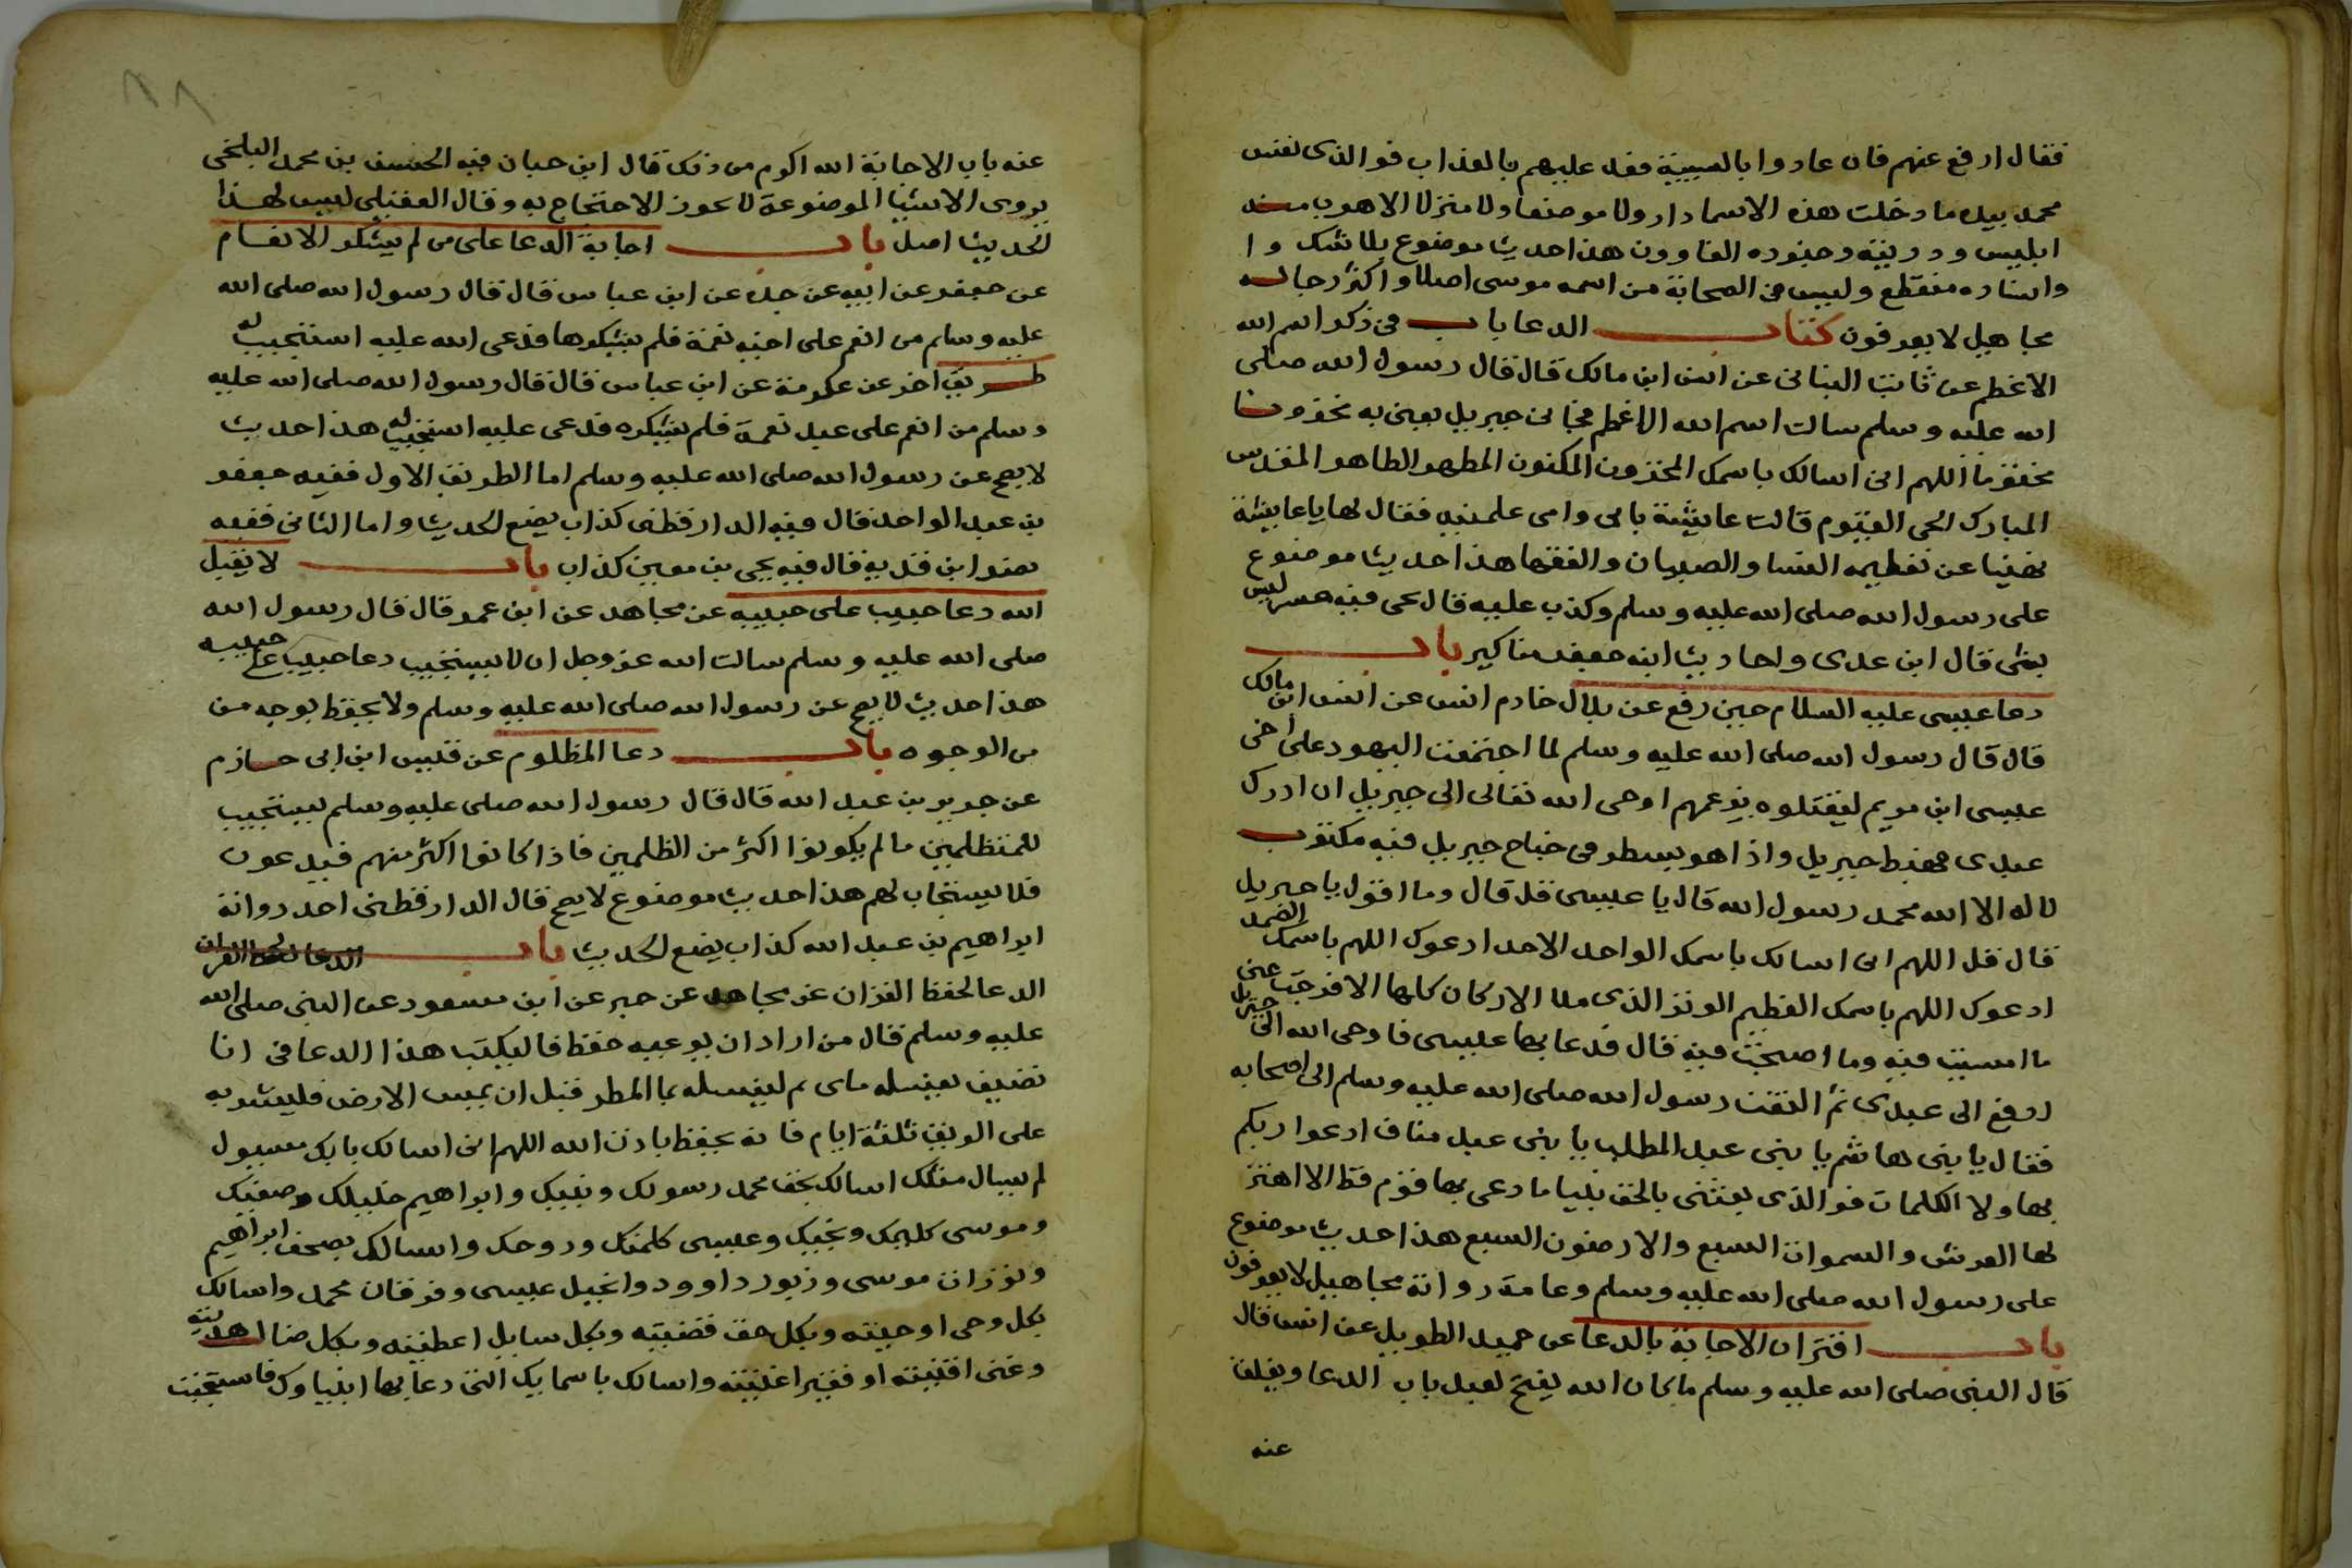 فقال ارفع عنهم فان عادوا بالسيئة فعد عليهم بالعذاب فوالذى نفس
محمد بيده ما دخلت هذه الاسما دار ولا موضعا ولا منزلا الا هرب منه
ابليس وذريته وجنوده الغاوون هذا حديث موضوع بلا شك وا
واسناده منقطع وليس فى الصحابة من اسمه موسى اصلا واكثر رجاله
مجاهيل لا يعرفون كتاب الدعا باب فى ذكر اسم الله
الاعظم عن ثابت البنانى عن انس ابن مالك قال قال رسول الله صلى
الله عليه وسلم سالت اسم الله الاعظم فجانى جبريل بعينه به مخزونا
مختوما اللهم انى اسالك باسمك المخزون المكنون المطهر الطاهر المقدس
المبارك الحى القيوم قالت عايشة بابى وامى علمنيه فقال لها يا عايشة
نهينا عن تعليمه النسا والصبيان والفقها هذا حديث موضوع
على رسول الله صلى الله عليه وسلم وكذب عليه قال يحى فيه ليس
بشى قال ابن عدى واحاديث ابنه جعفر مناكير باب
دعا عيسى عليه السلام حين رفع عن بلال خادم انس عن انس ابن مالك
قال قال رسول الله صلى الله عليه وسلم لما اجتمعت اليهود على اخى
عيسى ابن مريم ليقتلوه بزعمهم اوحى الله تعالى الى جبريل ان ادرك
عبدى فهبط جبريل واذا هو بسطر فى جناح جبريل فيه مكتوب
لا اله الا الله محمد رسول الله قال يا عيسى قل قال وما اقول يا جبريل
قال قل اللهم انى اسالك باسمك الواحد الاحد ادعوك اللهم باسمك الصمد
ادعوك اللهم باسمك العظيم الوتر الذى ملا الاركان كلها الا فرجت عنى
ما امسيت فيه وما اصبحت فيه قال فدعا بها عيسى فاوحى الله الى جبريل
ارفع الى عبدى ثم التفت رسول الله صلى الله عليه وسلم الى اصحابه
فقال يا بنى هاشم يا بنى عبد المطلب يا بنى عبد مناف ادعوا ربكم
بهاولا الكلمات فوالذى بعثنى بالحق نبيا ما دعى بها قوم قط الا اهتز
لها العرش والسموات السبع والارضون السبع هذا حديث موضوع
على رسول الله صلى الله عليه وسلم وعامة رواته مجاهيل لا يعرفون
باب اقتران الاجابة بالدعا عن حميد الطويل عن انس قال
قال النبى صلى الله عليه وسلم ما كان الله ليفتح لعبد باب الدعا ويغلق
عنه
عنه باب الاجابة الله اكرم من ذلك قال ابن حبان فيه الحسن بن محمد البلخى
يروى الاشيا الموضوعة لا يجوز الاحتجاج به وقال العقيلى ليس لهذا
الحديث اصل باب اجابة الدعا على من لم يشكر الانعام
عن جعفر عن ابيه عن جده عن ابن عباس قال قال رسول الله صلى الله
عليه وسلم من انعم على اخيه نعمة فلم يشكرها فدعى الله عليه استجيب له
طريق اخر عن عكرمة عن ابن عباس قال قال رسول الله صلى الله عليه
وسلم من انعم على عبد نعمة فلم يشكره فدعى عليه استجيب له هذا حديث
لا يصح عن رسول الله صلى الله عليه وسلم اما الطريق الاول ففيه جعفر
بن عبد الواحد قال فيه الدارقطنى كذاب يضع الحديث واما الثانى ففيه
نصر ابن قديد قال فيه يحيى بن معين كذاب باب لا يقبل
الله دعا حبيب على حبيبه عن مجاهد عن ابن عمر قال قال رسول الله
صلى الله عليه وسلم سالت الله عز وجل ان لا يستجيب دعا حبيب على حبيبه
هذا حديث لا يصح عن رسول الله صلى الله عليه وسلم ولا يحفظ بوجه من
من الوجوه باب دعا المظلوم عن قيس ابن ابى حازم
عن جرير بن عبد الله قال قال رسول الله صلى عليه وسلم يستجيب
للمتظلمين ما لم يكونوا اكثر من الظلمين فاذا كانوا اكثر منهم فيدعون
فلا يستجاب لهم هذا حديث موضوع لا يصح قال الدارقطنى احد رواته
ابراهيم بن عبد الله كذاب يضع الحديث باب الدعا لحفظ القران
الدعا لحفظ القران عن مجاهد عن جبر عن ابن مسعود عن النبى صلى الله
عليه وسلم قال من اراد ان يوعيه حفظ فاليكتب هذا الدعا فى انا
نضيف بعيسله ماى ثم ليغسله بما المطر قبل ان يمس الارض فليشربه
على الريق ثلثة ايام فانه يحفظ باذن الله اللهم انى اسالك بانك مسيول
لم يسال مثلك اسالك بحق محمد رسولك ونبيك وابراهيم خليلك وصفيك
وموسى كليمك ونجيك وعيسى كلمتك وروحك واسالك بصحف ابراهيم
وتوزات موسى وزبور داوود وانجيل عيسى وفرقان محمد واسالك
بكل وحى اوحيته وبكل حق قضيته وبكل سايل اعطيته وبكل ضال هديته
وغنى اقنيته او فقيرا غنيته واسالك باسمايك التى دعا بها انبياوك فاستجبت